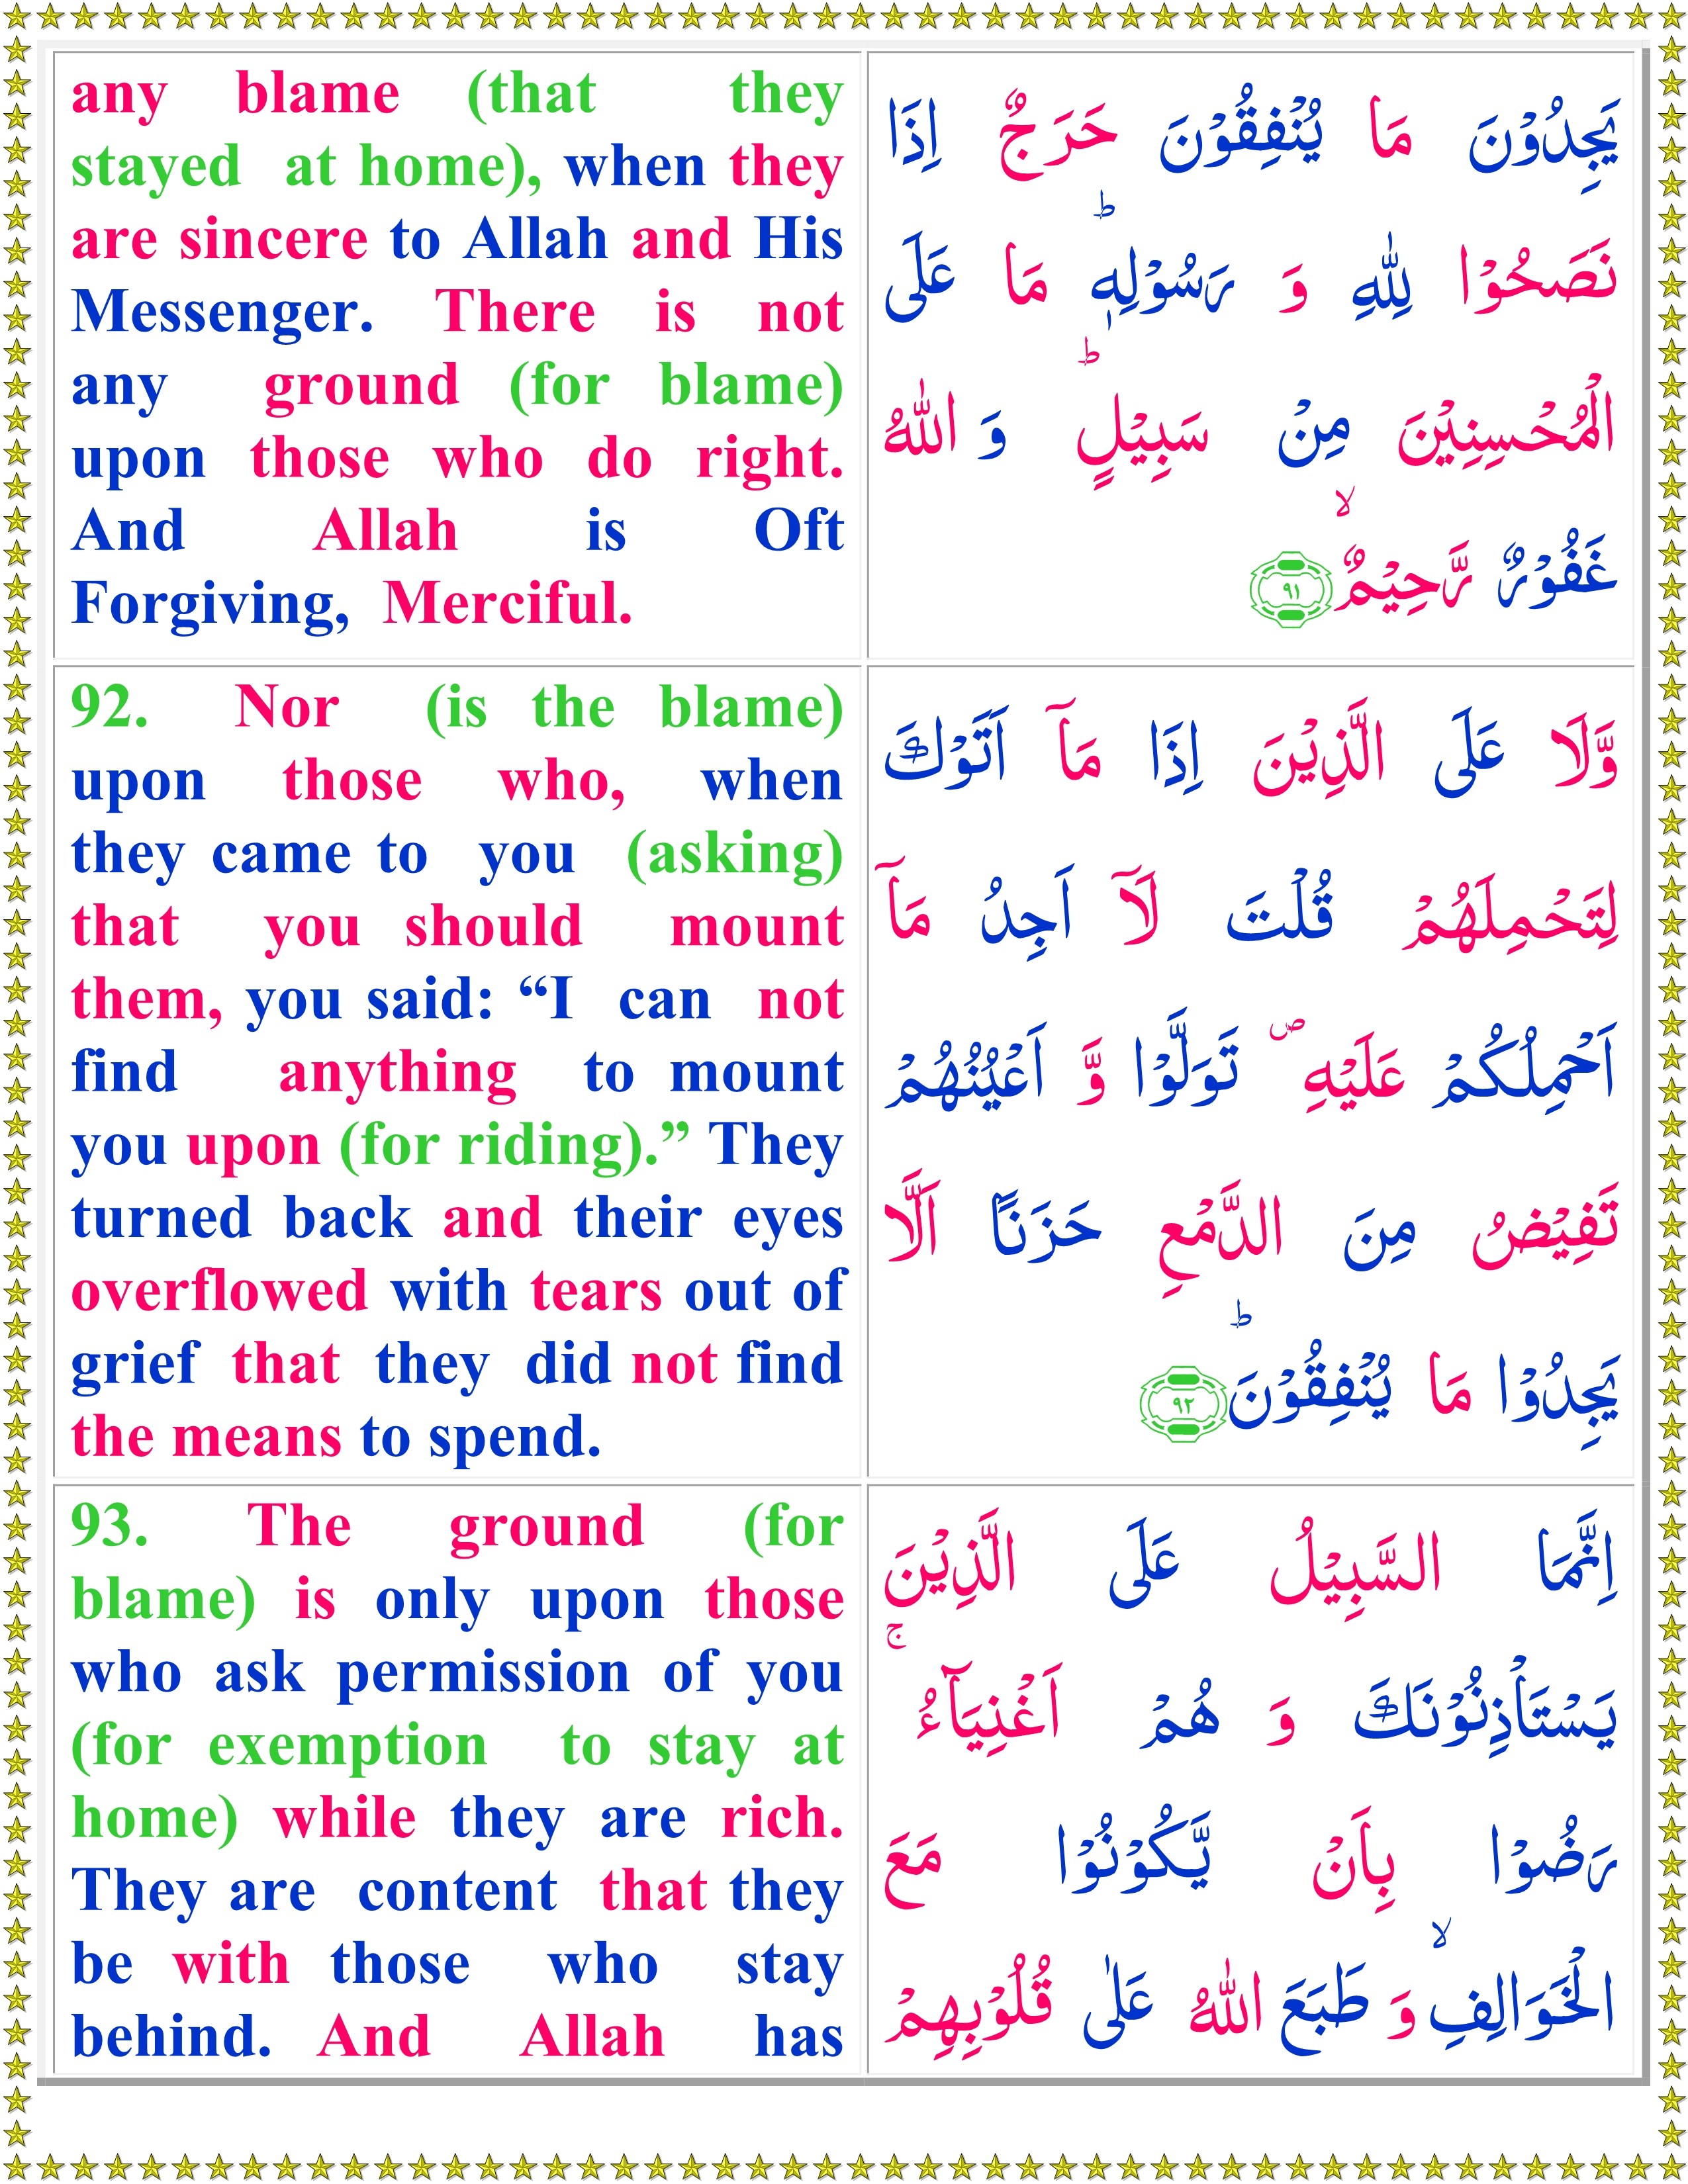 any blame (that they
stayed at home), when they
are sincere to Allah and His
Messenger. There is not
any ground (for blame)
upon those who do right.
And Allah is Oft
Forgiving, Merciful.
يَجِدُوْنَ مَا يُنْفِقُوْنَ حَرَجٌ اِذَا
نَصَحُوْا لِلّٰهِ وَ رَسُوْلِهٖ ؕ مَا عَلَی
الْمُحْسِنِيْنَ مِنْ سَبِيْلٍ ؕ وَ اللّٰهُ
غَفُوْرٌ رَّحِيْمٌ ۙ ﴿۹۱﴾
92. Nor (is the blame)
upon those who, when
they came to you (asking)
that you should mount
them, you said: “I can not
find anything to mount
you upon (for riding).” They
turned back and their eyes
overflowed with tears out of
grief that they did not find
the means to spend.
وَّلَا عَلَی الَّذِيْنَ اِذَا مَاۤ اَتَوْكَ
لِتَحْمِلَهُمْ قُلْتَ لَاۤ اَجِدُ مَاۤ
اَحْمِلُكُمْ عَلَيْهِ ۪ تَوَلَّوْا وَّ اَعْيُنُهُمْ
تَفِيْضُ مِنَ الدَّمْعِ حَزَنًا اَلَّا
يَجِدُوْا مَا يُنْفِقُوْنَ ؕ ﴿۹۲﴾
93. The ground (for
blame) is only upon those
who ask permission of you
(for exemption to stay at
home) while they are rich.
They are content that they
be with those who stay
behind. And Allah has
اِنَّمَا السَّبِيْلُ عَلَی الَّذِيْنَ
يَسْتَاْذِنُوْنَكَ وَ هُمْ اَغْنِيَآءُ ۚ
رَضُوْا بِاَنْ يَّكُوْنُوْا مَعَ
الْخَوَالِفِ ۙ وَ طَبَعَ اللّٰهُ عَلٰی قُلُوْبِهِمْ